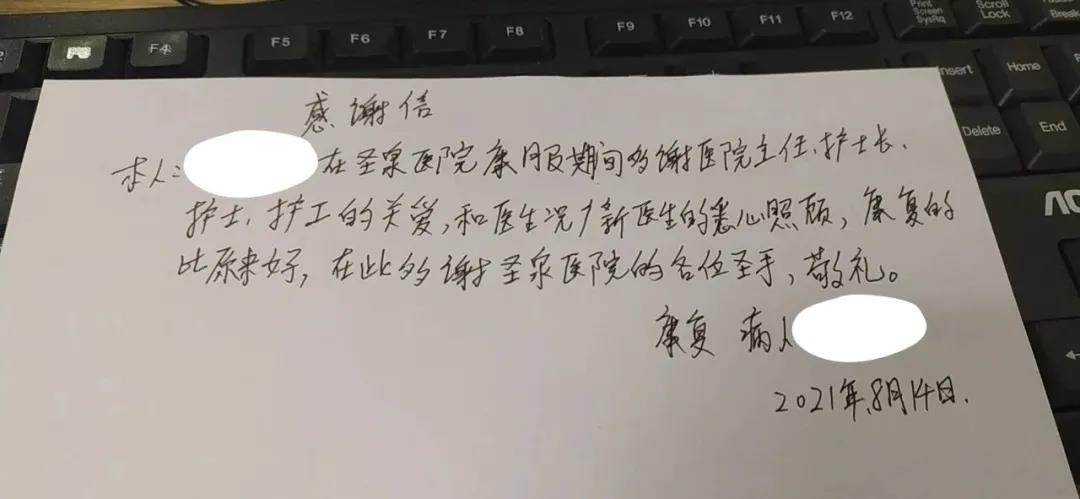 F4
F5
F6
F7
F8
F9
F10
F11
F12
Print
Screen
SysRq
Scroll
Lock
Pause
Break
Insert
Home
Delete
End
AOC
感谢信
本人:在圣泉医院康服期间多谢医院主任、护士长、
护士、护工的关爱,和医生况广新医生的悉心照顾,康复的
比原来好,在此多谢圣泉医院的各位圣手,敬礼。
康复 病人
2021年8月14日.